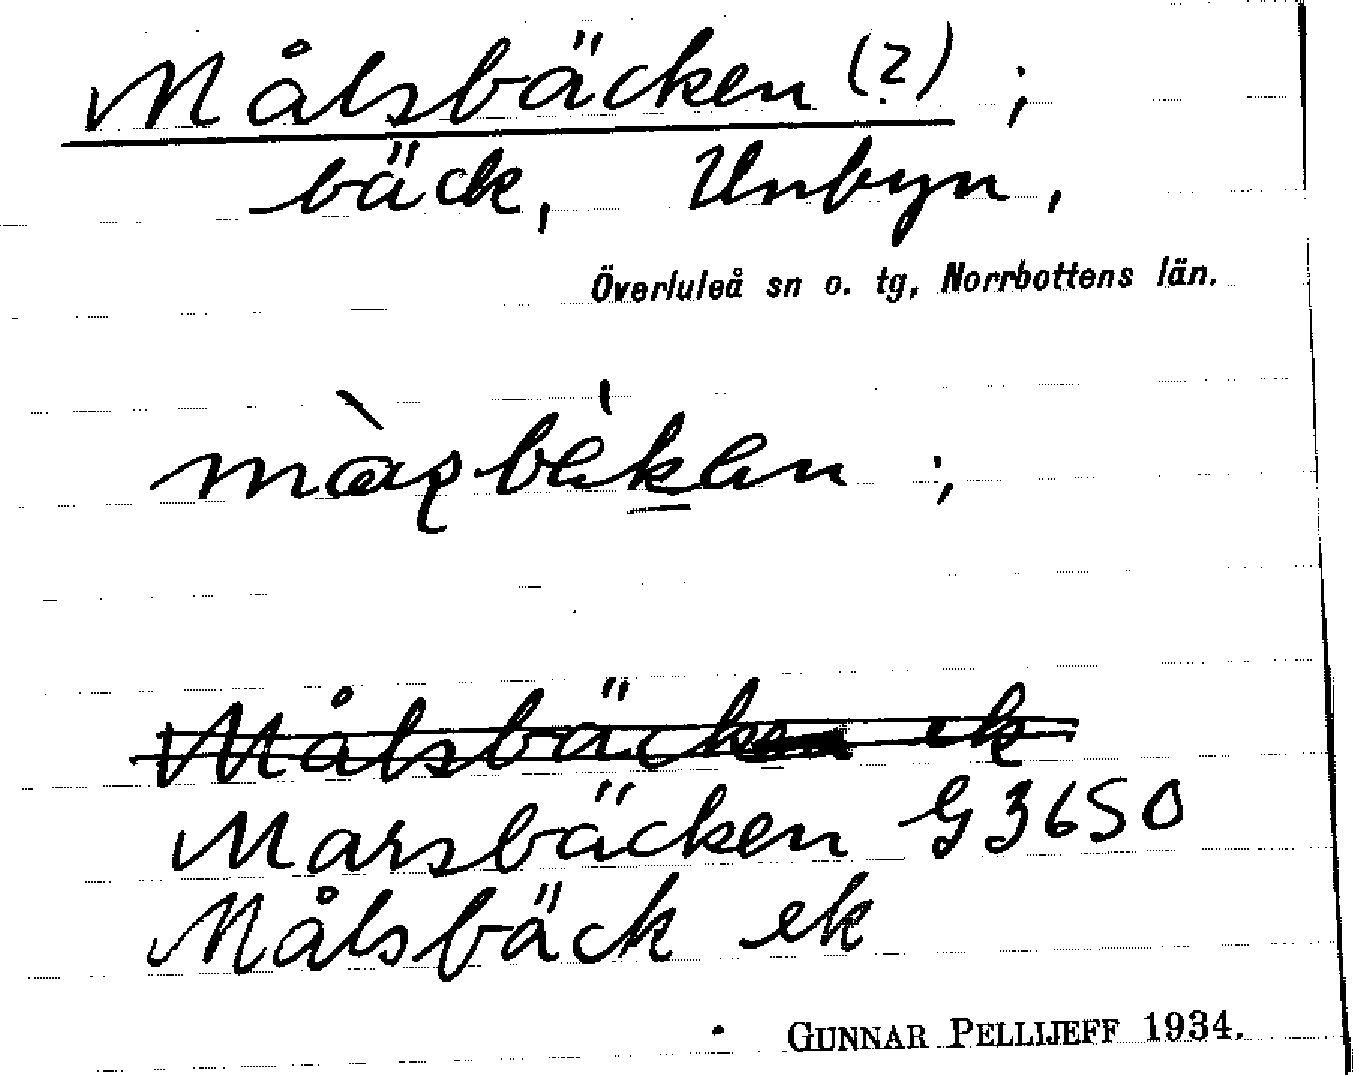 Målsbäcken (?) ;
bäck, Unbyn,
Överluleå sn o. tg, Norrbottens län.
Målsbäcken ek
Marsbäcken G3650
Målsbäck ek
GUNNAR PELLIJEFF 1934.